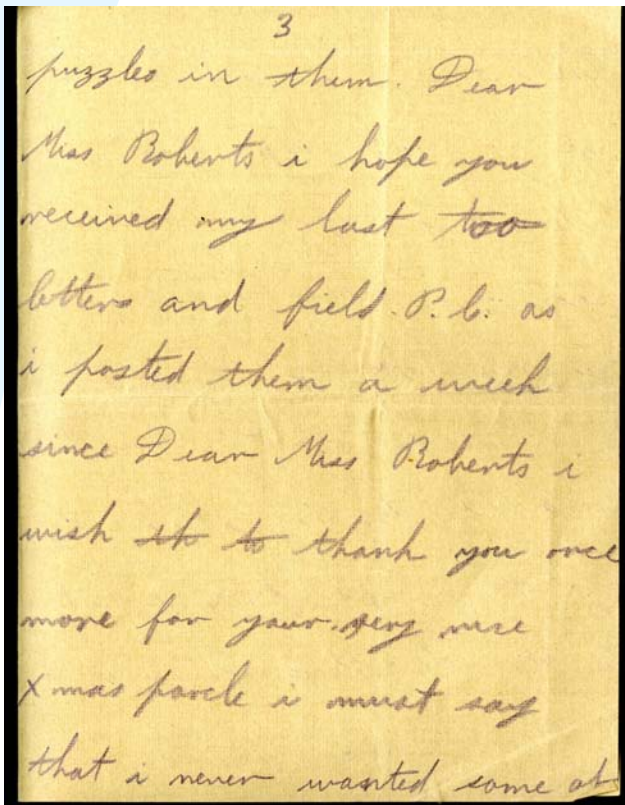 3
puzzles in them. Dear
Miss Roberts i hope you
received my last too
letters and field. P. C. as
i posted them a week
since Dear Miss Roberts i
wish th to thank you once
more for your very nice
Xmas parcle i must say
that i never wanted some at